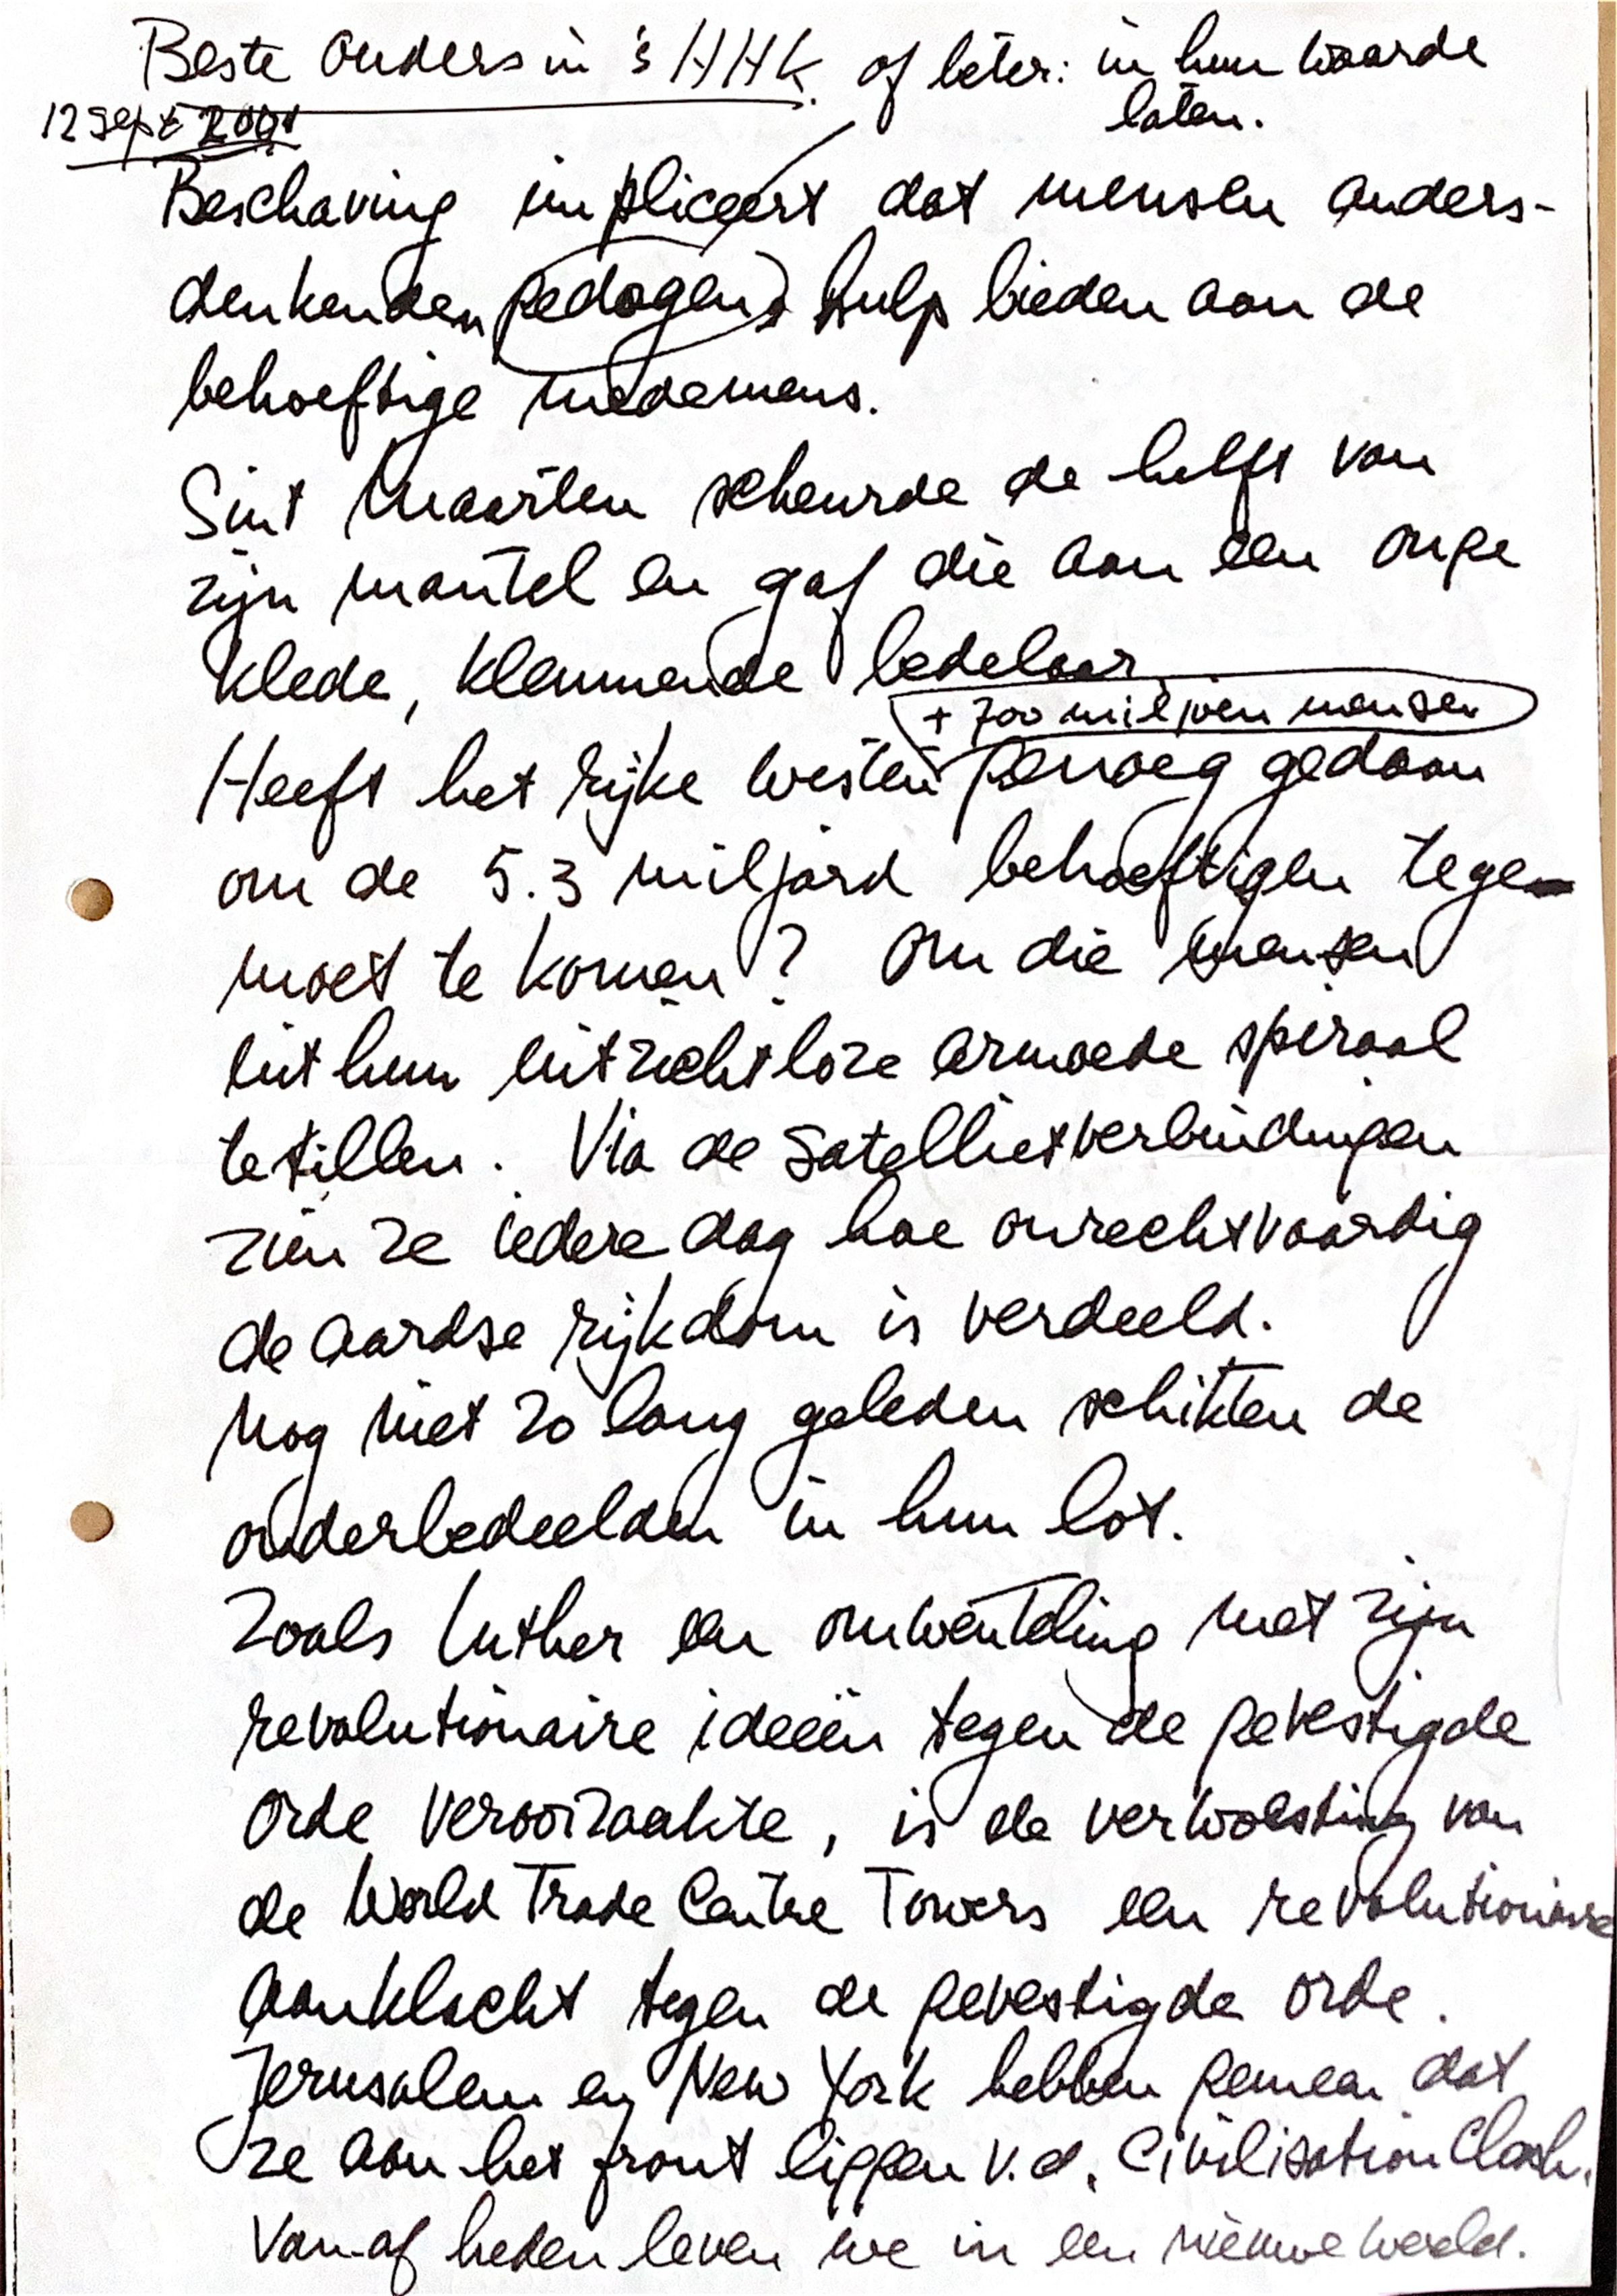 Beste Ouders in 's HHK. of beter: in hun waarde
laten.
12 sept 2001
Beschaving impliceert dat mensen anders-
denkenden gedogen, hulp bieden aan de
behoeftige medemens.
Sint Maarten scheurde de helft van
zijn mantel en gaf die aan een onge
klede, kleumende bedelaar.
+ 700 miljoen mensen
Heeft het rijke westen genoeg gedaan
om de 5.3 miljard behoeftigen tege-
moet te komen? Om die mensen
uit hun uitzichtloze armoede spiraal
te tillen. Via de satellietverbindingen
zien ze iedere dag hoe onrechtvaardig
de aardse rijkdom is verdeeld.
Nog niet zo lang geleden schikten de
onderbedeelden in hun lot.
Zoals Luther een omwenteling met zijn
revolutionaire ideeën tegen de gevestigde
orde veroorzaakte, is de verwoesting van
de World Trade Centre Towers een revolutionaire
aanklacht tegen de gevestigde orde.
Jerusalem en New York hebben gemeen dat
ze aan het front liggen v.d. Civilisation Clash.
Vanaf heden leven we in een nieuwe wereld.